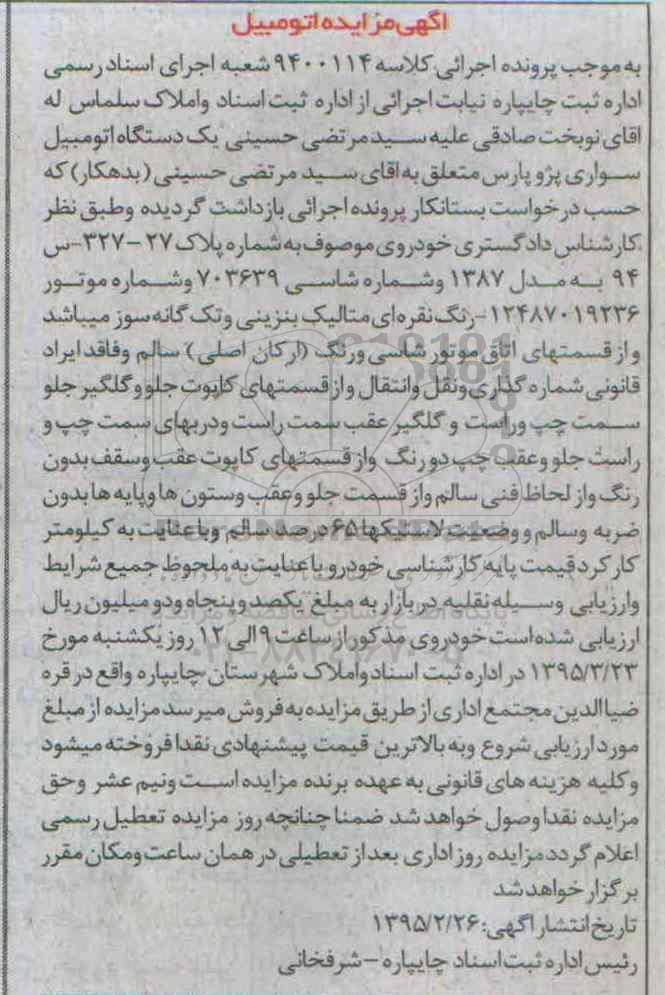 آگهی مزایده اتومبیل
به موجب پرونده اجرائی کلاسه ۹۴۰۰۱۱۴ شعبه اجرای اسناد رسمی
اداره ثبت چایپاره نیابت اجرائی از اداره ثبت اسناد واملاک سلماس له
اقای نوبخت صادقی علیه سید مرتضی حسینی یک دستگاه اتومبیل
سواری پژو پارس متعلق به اقای سید مرتضی حسینی (بدهکار) که
حسب درخواست بستانکار پرونده اجرائی بازداشت گردیده وطبق نظر
کارشناس دادگستری خودروی موصوف به شماره پلاک ۲۷ -۳۲۷-س
۹۴ به مدل ۱۳۸۷ وشماره شاسی ۷۰۳۶۳۹ وشماره موتور
۱۲۴۸۷۰۱۹۲۳۶-رنگ نقره ای متالیک بنزینی وتک گانه سوز میباشد
و از قسمتهای اتاق موتور شاسی ورنگ (ارکان اصلی) سالم وفاقد ایراد
قانونی شماره گذاری ونقل وانتقال و از قسمتهای کاپوت جلو و گلگیر جلو
سمت چپ وراست و گلگیر عقب سمت راست ودربهای سمت چپ و
راست جلو وعقب چپ دو رنگ واز قسمتهای کاپوت عقب وسقف بدون
رنگ واز لحاظ فنی سالم واز قسمت جلو وعقب وستون ها وپایه ها بدون
ضربه وسالم و وضعیت لاستیکها ۶۵ درصد سالم وبا عنایت به کیلومتر
کارکرد قیمت پایه کارشناسی خودرو با عنایت به ملحوظ جمیع شرایط
وارزیابی وسیله نقلیه در بازار به مبلغ یکصد وپنجاه ودو میلیون ریال
ارزیابی شده است خودروی مذکور از ساعت ۹ الی ۱۲ روز یکشنبه مورخ
۱۳۹۵/۳/۲۳ در اداره ثبت اسناد واملاک شهرستان چایپاره واقع در قره
ضیاالدین مجتمع اداری از طریق مزایده به فروش میرسد مزایده از مبلغ
مورد ارزیابی شروع وبه بالاترین قیمت پیشنهادی نقدا فروخته میشود
وکلیه هزینه های قانونی به عهده برنده مزایده است ونیم عشر وحق
مزایده نقدا وصول خواهد شد ضمنا چنانچه روز مزایده تعطیل رسمی
اعلام گردد مزایده روز اداری بعد از تعطیلی در همان ساعت ومکان مقرر
برگزار خواهد شد
تاریخ انتشار اگهی: ۱۳۹۵/۲/۲۶
رئیس اداره ثبت اسناد چایپاره - شرفخانی